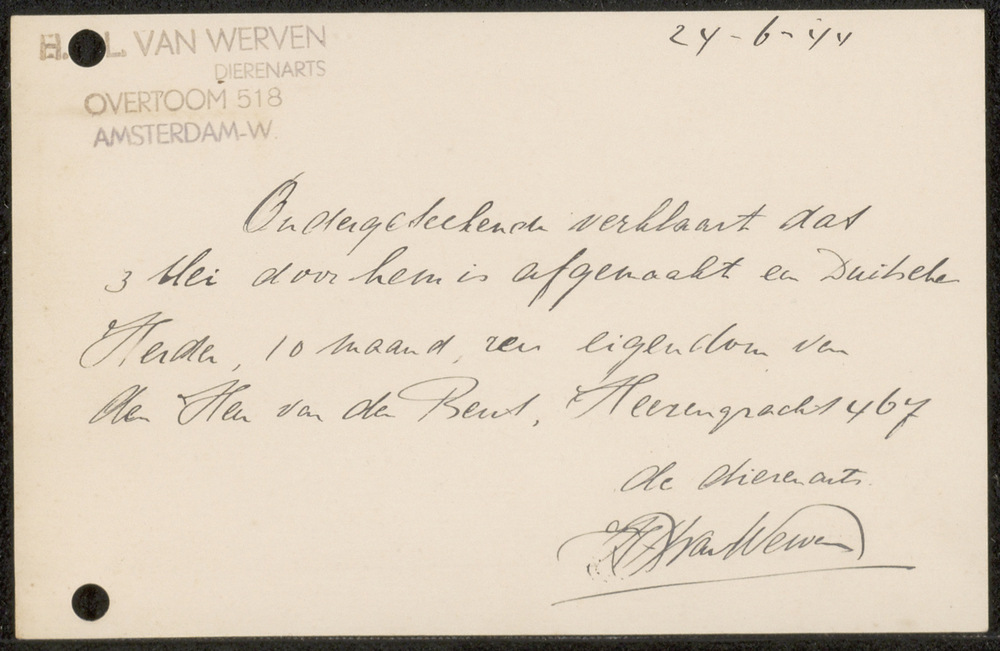 H. L. VAN WERVEN
DIERENARTS
OVERTOOM 518
AMSTERDAM-W.
24-6-44
Ondergeteekende verklaart dat
3 Mei door hem is afgemaakt en Duitsche
Herder, 10 maand, zen eigendom van
den Heer van der Heerengracht 467
de dierenarts.
van Werven